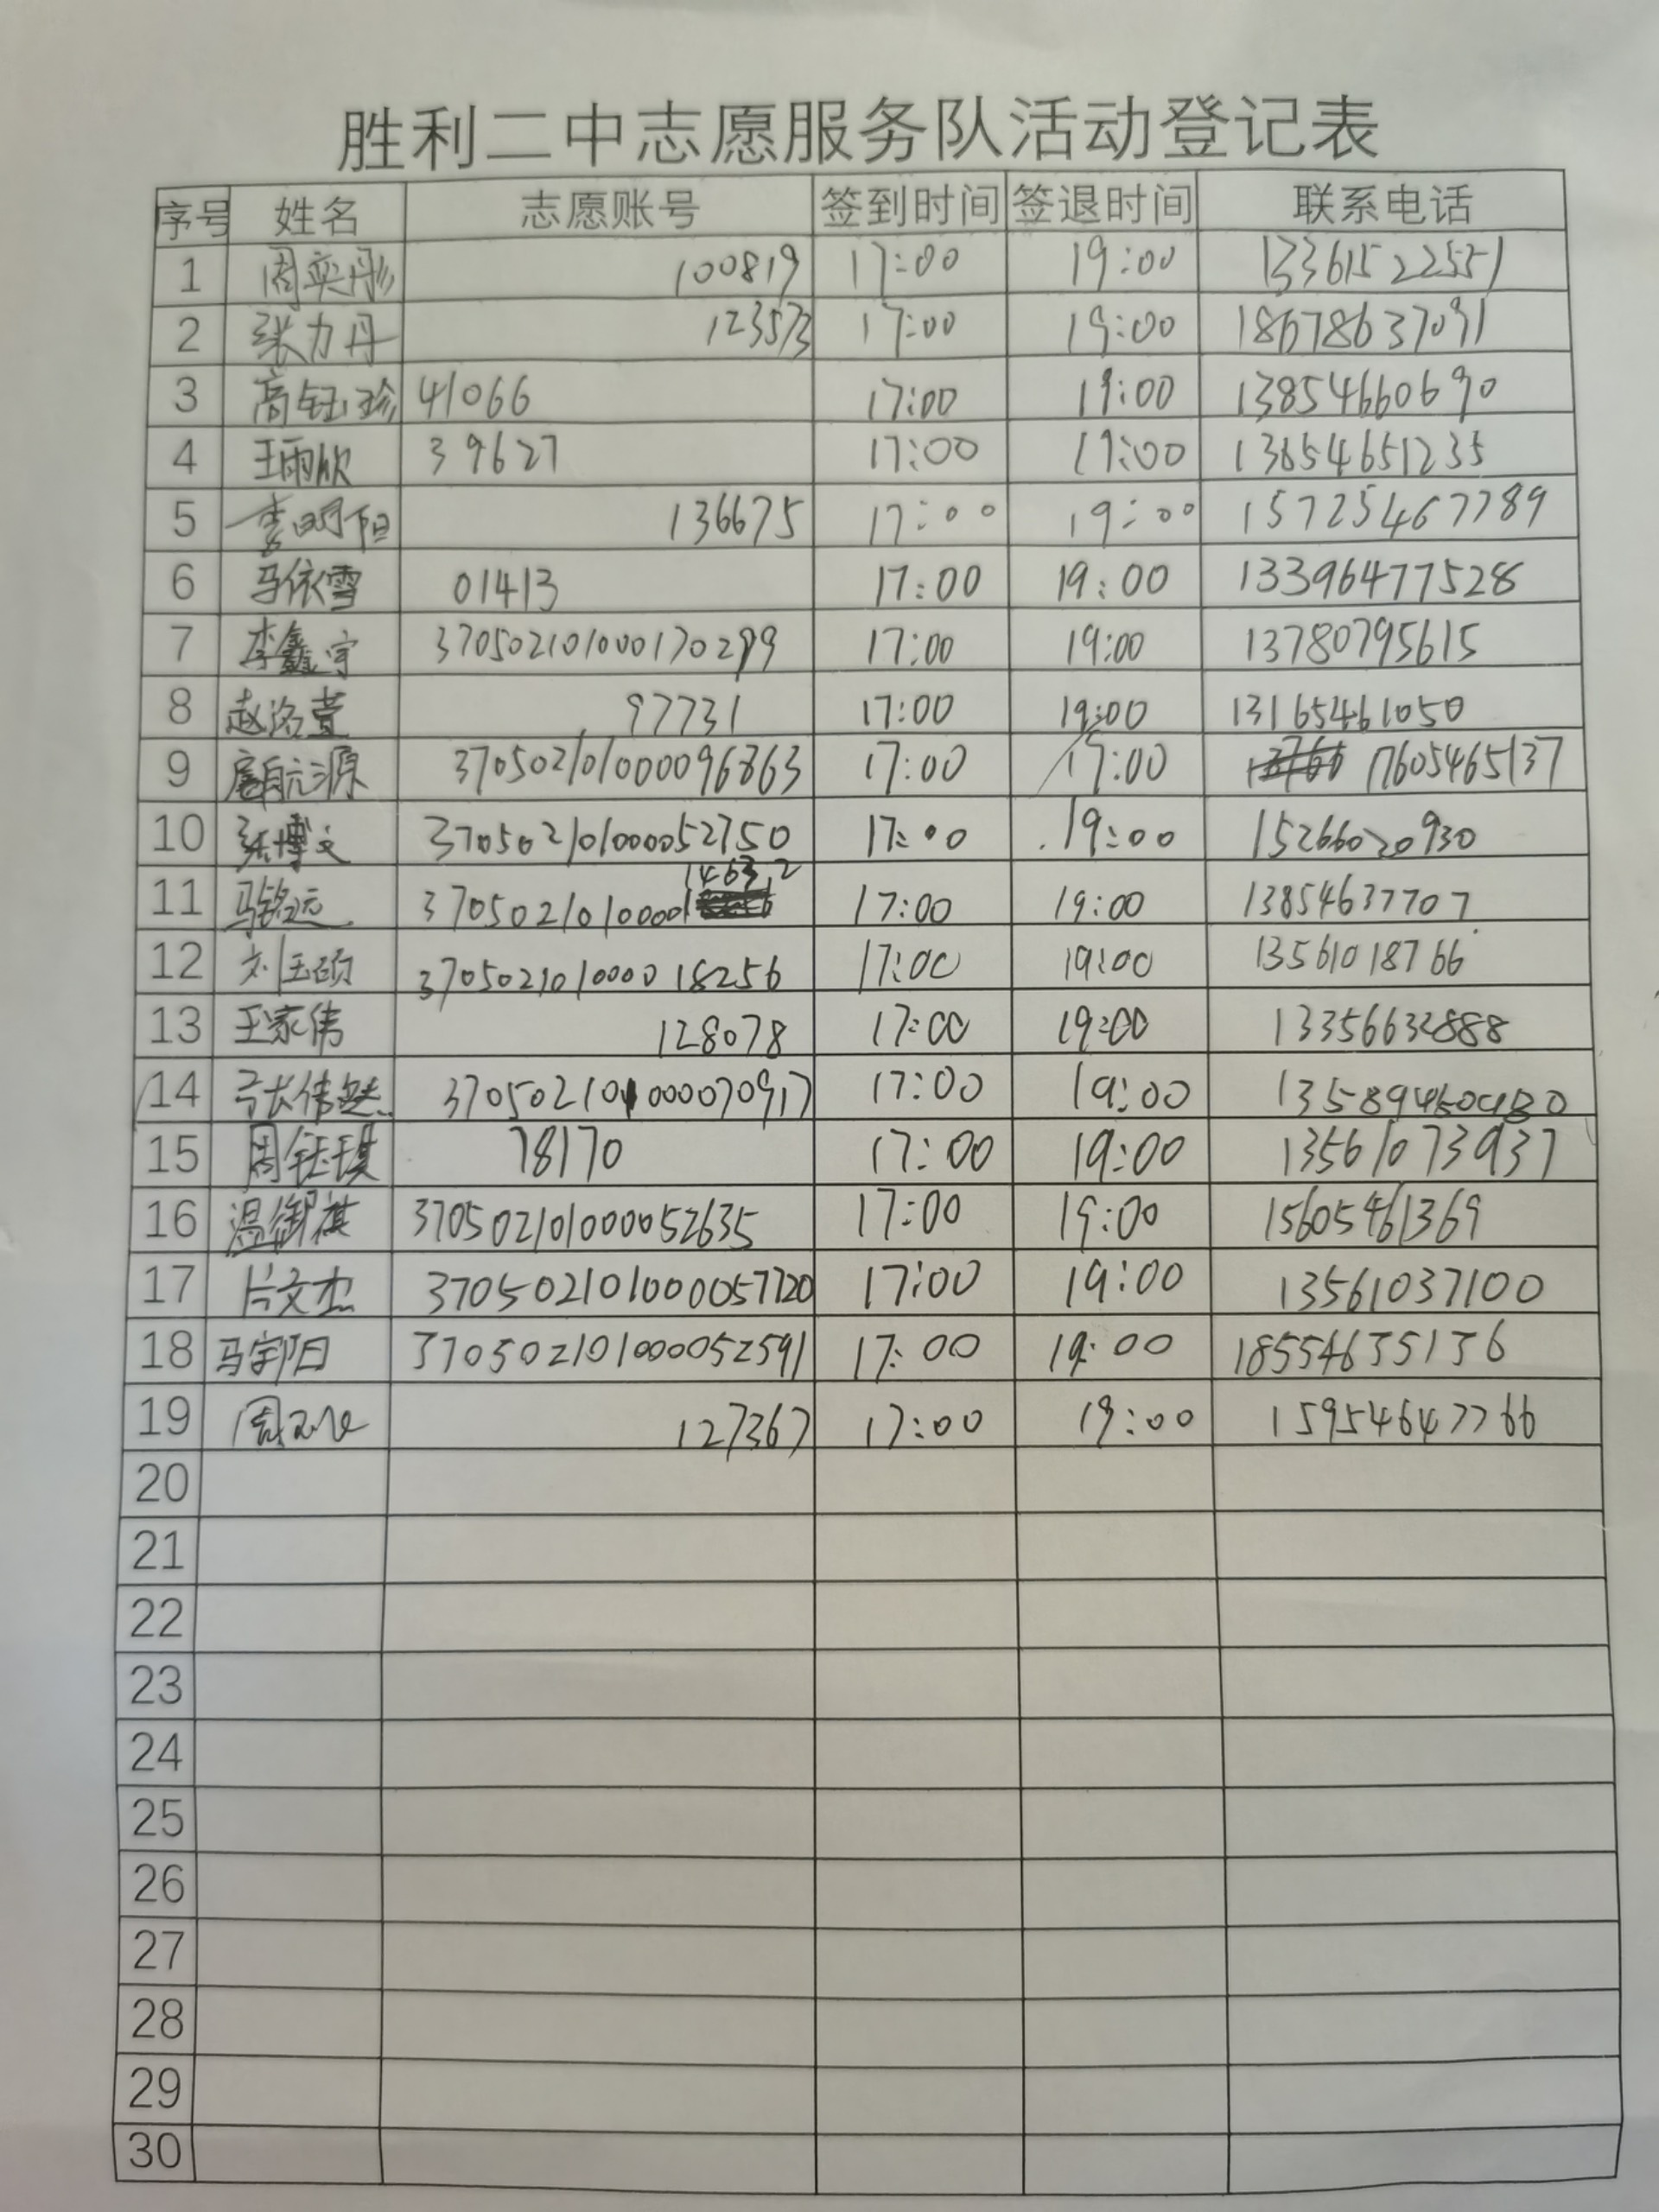 胜利二中志愿服务队活动登记表
序号 姓名 志愿账号 签到时间 签退时间 联系电话
1 周奕彤 100819 17:00 19:00 13361522551
2 张力丹 123573 17:00 19:00 18678637091
3 高钰珍 41066 17:00 19:00 13854660690
4 王雨欣 39627 17:00 19:00 13654651235
5 李明阳 136675 17:00 19:00 15725467789
6 马依雪 01413 17:00 19:00 13396477528
7 李鑫宇 370502101000170299 17:00 19:00 13780795615
8 赵洛萱 97731 17:00 19:00 13165461050
9 扈航源 370502101000096863 17:00 19:00 17605465137
10 张博文 370502101000052750 17:00 19:00 15266020930
11 马铭远 17:00 19:00 13854637707
12 刘玉硕 370502101000018256 17:00 19:00 13561018766
13 王家伟 128078 17:00 19:00 13356632888
14 张伟然 370502101000070917 17:00 19:00
15 周钰琪 78170 17:00 19:00 13561073937
16 温御祺 370502101000052635 17:00 19:00 15605461369
17 文杰 370502101000057720 17:00 19:00 13561037100
18 马宇阳 370502101000052591 17:00 19:00 18554635136
19 周 127367 17:00 19:00 15954647766
20
21
22
23
24
25
26
27
28
29
30